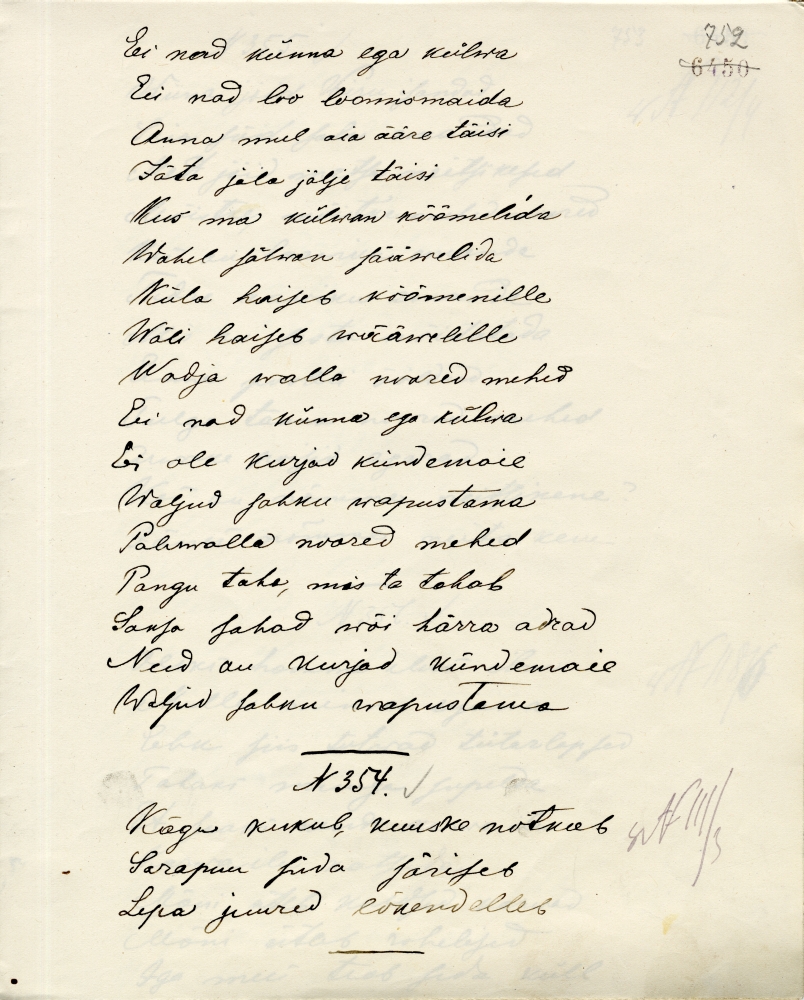 752
6450
Ei nad künna ega külwa
Ei nad loo loomismaida
Anna mul aia ääre täisi
Jäta jala jälje täisi
Kus ma külwan köömelida
Wahel sälwan sääwelida
Küla haiseb köömenille
Wäli haiseb wääwelille
Wadja walla noored mehed
Ei nad künna ega külwa
Ei ole kurjad kündemaie
Waljud sahku wapustama
Pahuwalla noored mehed
Pangu taha, mis ta tahab
Saksa sahad wõi härra adrad
Need on kurjad kündemaie
Waljud sahku wapustama
N 354.
Kägu kukub, kuuske nõtkub
Sarapuu süda säriseb
Lepa juured lõkendelleb